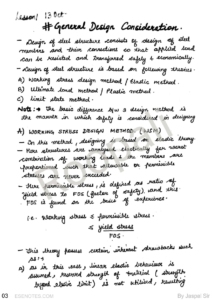 Lesson 1 13 Oct
# General Design Consideration.
- Design of steel structure consists of design of steel
members and their connections so that applied load
can be resisted and transferred safely & economically.
- Design of steel structure is based on following theories:
a) Working stress design method / Elastic method.
b) Ultimate load method / Plastic method.
c) Limit state method.
Note:- The basic difference b/w 3 design method is
the manner in which safety is considered in designing
A) WORKING STRESS DESIGN METHOD (WSM)
- In this method, designing is based on elastic theory
- Here structures are analysed elastically for worst
combination of working loads & the members are
proportioned such that allowable or permissible
stresses are never exceeded.
- Here permissible stress, is defined as ratio of
yield stress to FOS (factor of safety), and this
FOS is found on the basis of experience.
i.e. Working stress ≤ permissible stress.
≤ yield stress
FOS.
- This theory possess certain inherent drawbacks such
as:-
a) As in this area, linear elastic behaviour is
assumed, reserved strength of material (strength
beyond elastic limit) is not utilized, resulting
03
By Jaspal Sir